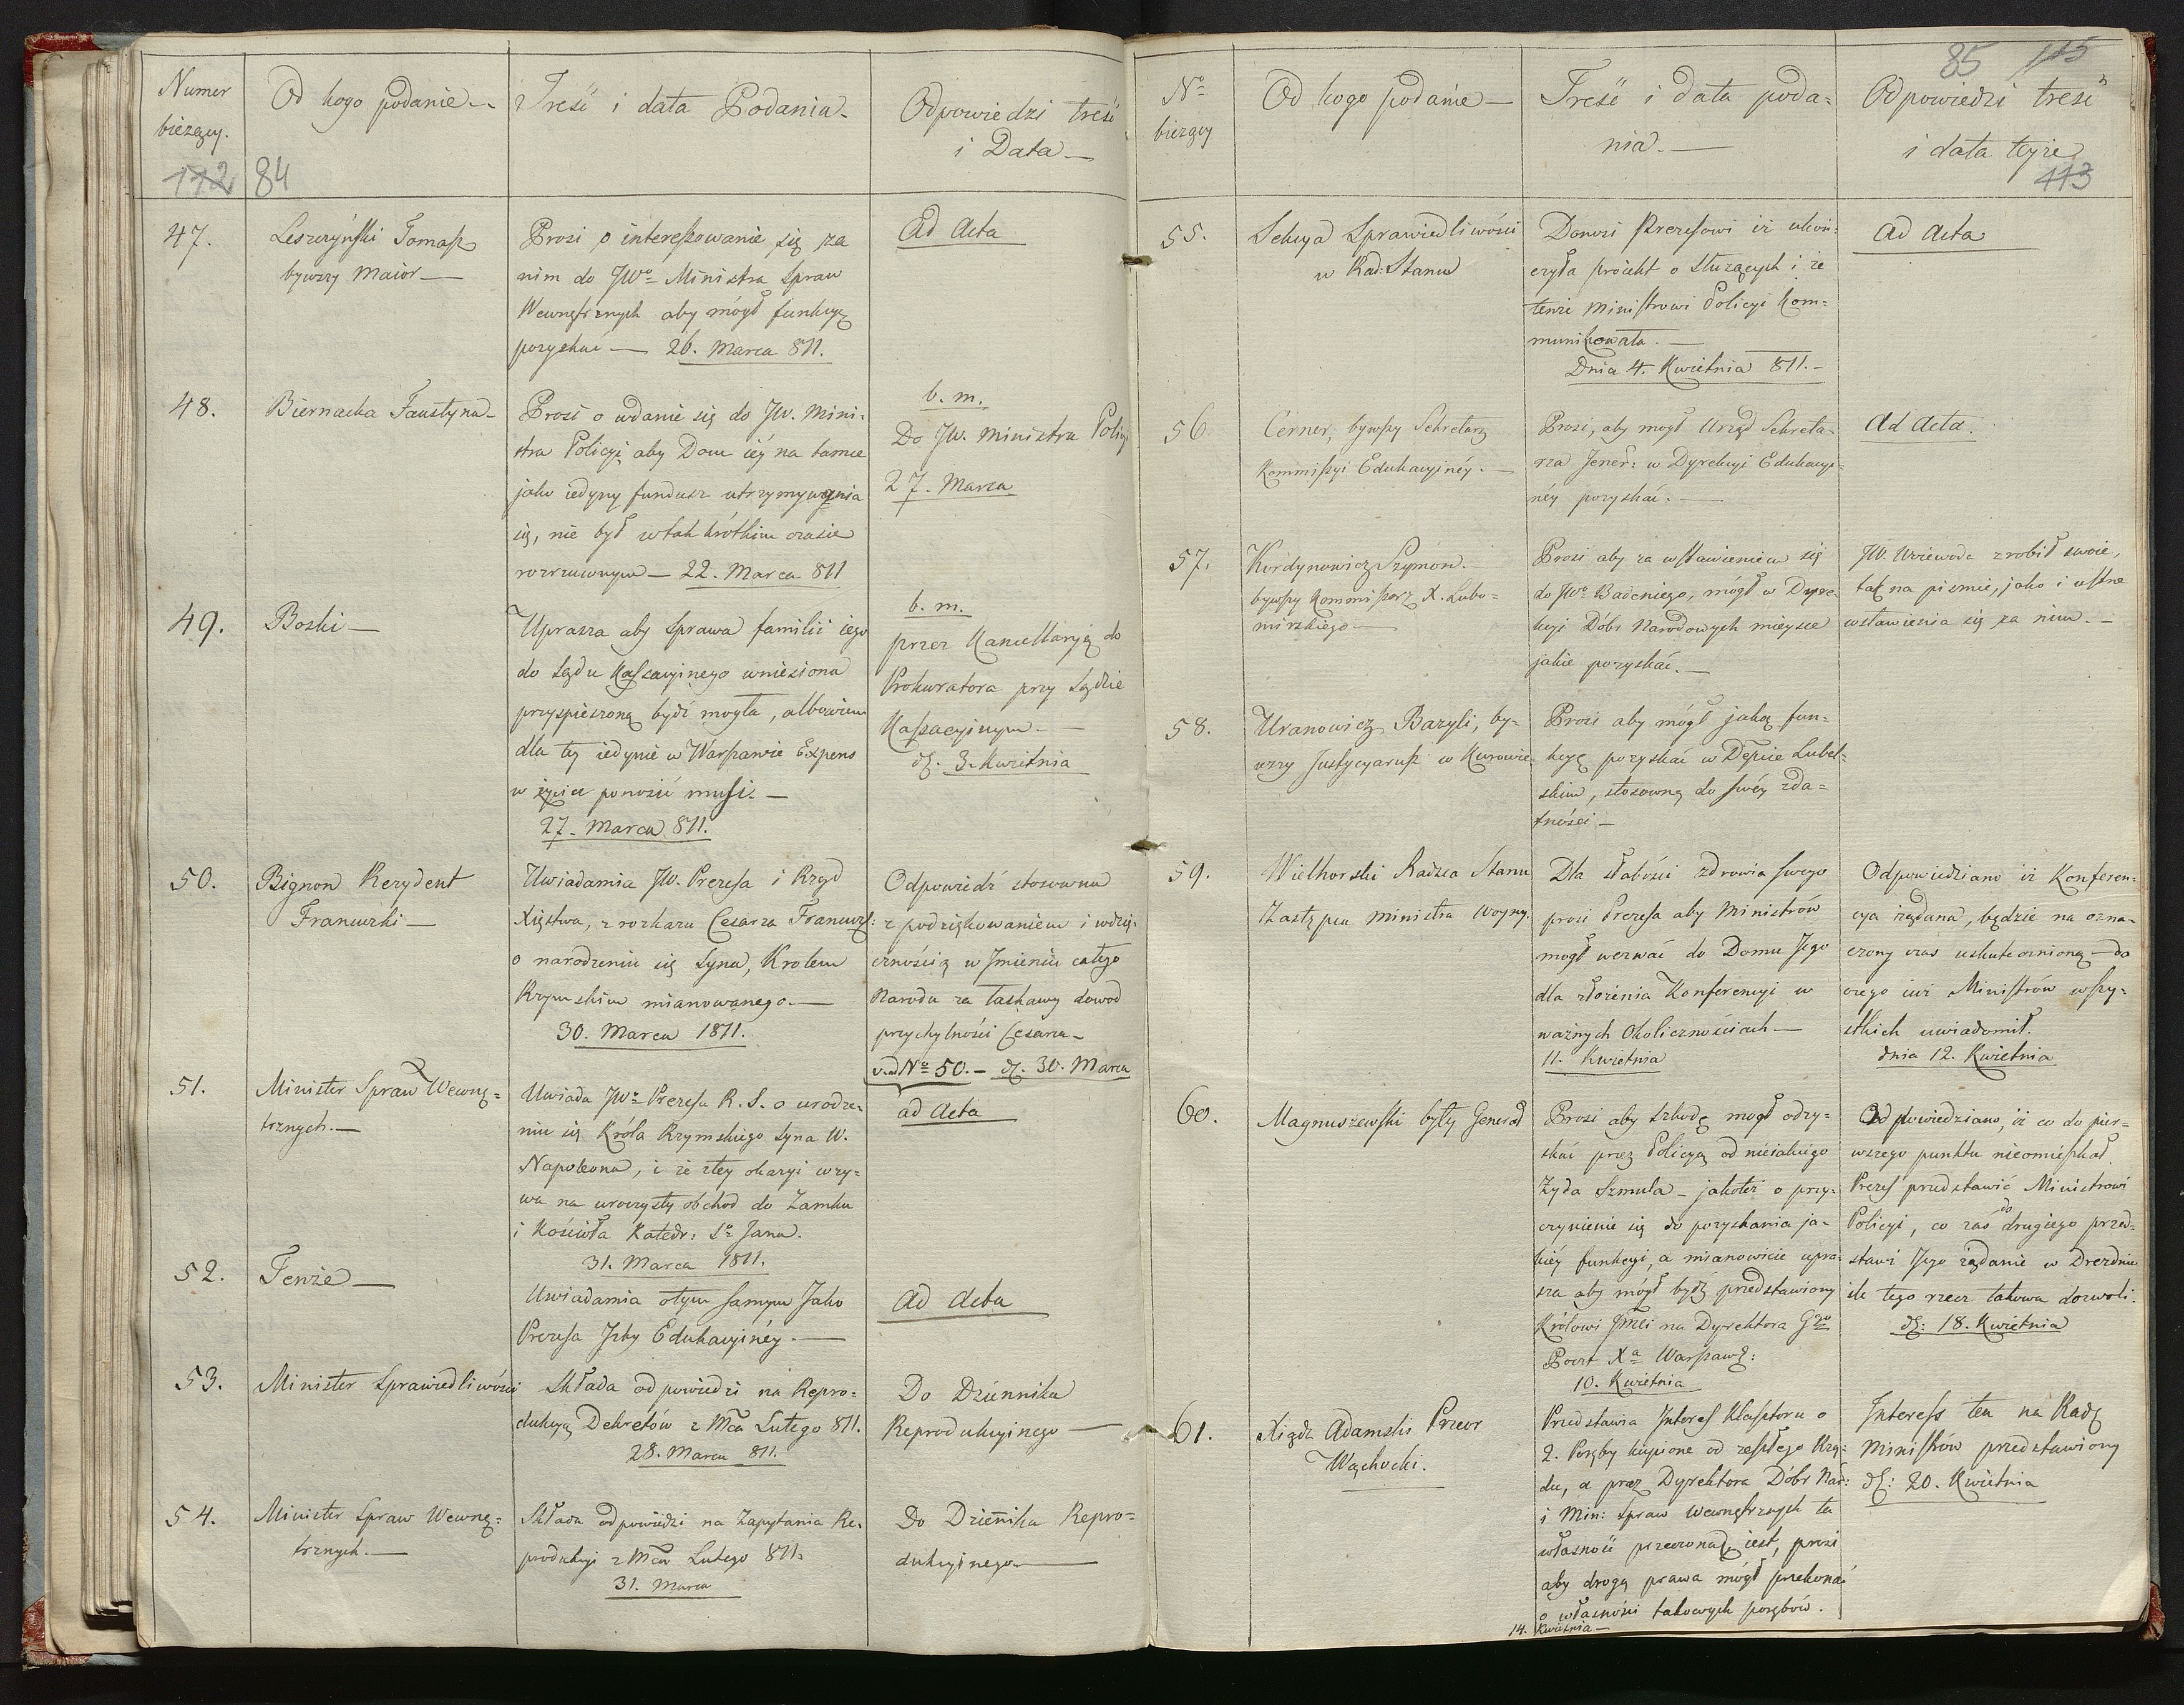 Numer
bieżący.
Od kogo podanie—
Treść i data Podania—
Odpowiedzi treść
i Data—
112 84
47.
Leszczyński Tomasz
bywszy Maior—
Prosi o interessowanie się za
nim do JWo Ministra Spraw
Wewnętrznych aby mógł funkcyę
pozyskać — 26. Marca 811.
Ad Acta
48.
Biernacka Faustyna—
Prosi o udanie się do JW. Mini-
stra Policyi, aby Dom iey na tamce
jako iedyny fundusz utrzymywania
się, nie był w tak krótkim czasie
rozrzuconym — 22. Marca 811
b. m.
Do JW. Ministra Policyi
27. Marca
49.
Boski—
Uprasza aby sprawa familii iego
do Sądu Kassacyinego wniesiona
przyspieszoną bydź mogła, albowiem
dla tey iedynie w Warszawie Expens
w życiu ponosić musi.—
27. Marca 811.
b. m.
przez Kancellaryą do
Prokuratora przy Sądzie
Kassacyinym.—
d. 3. Kwietnia
50.
Bignon Rezydent
Francuzki—
Uwiadamia JW. Prezesa i Rząd
Xięstwa, z rozkazu Cesarza Francuzk:
o narodzeniu się Syna, Krolem
Rzymskim mianowanego.—
30. Marca 1811.
Odpowiedź stosowna
z podziękowaniem i wdzię-
cznością w Jmieniu całego
Narodu za łaskawy dowod
przychylności Cesarza—
vid No 50.— d. 30. Marca
51.
Minister Spraw Wewnę=
trznych.—
Uwiada JWo Prezesa R. S. o urodze-
niu się Króla Rzymskiego Syna W.
Napoleona, i że z tey okazyi wzy-
wa na uroczysty obchod do Zamku
i Kościoła Katedr: So Jana.
31. Marca 1811.
ad Acta
52.
Tenże—
Uwiadamia o tym samym Jako
Prezesa Jzby Edukacyinéy.—
Ad Acta
53.
Minister Sprawiedliwości
Składa odpowiedzi na Repro-
dukcyą Dekretów z Mca Lutego 811.
28. Marca 811.
Do Dziennika
Reprodukcyinego—
54.
Minister Spraw Wewnę=
trznych.—
Składa odpowiedzi na Zapytania Re-
produkcyi z Mca Lutego 811.
31. Marca
Do Dziennika Repro=
dukcyinego—
85 115
No
bieżący
Od kogo podanie—
Treść i data poda=
nia.—
Odpowiedzi treść
i data teyże
113
55.
Sekcya Sprawiedliwości
w Rad: Stanu
Donosi Prezesowi iż ukoń-
czyła proiekt o służących i że
tenże Ministrowi Policyi kom=
munikowała.—
Dnia 4. Kwietnia 811.—
Ad Acta
56.
Cerner, bywszy Sekretarz
Kommissyi Edukacyinéy.—
Prosi, aby mogł Urząd Sekreta-
rza Jener: w Dyrekcyi Edukacyi-
néy pozyskać.—
Ad Acta.
57.
Kordynowicz Szymon.
bywszy Kommissarz X. Lubo=
mirskiego—
Prosi aby za wstawieniem się
do JWo Badeniego, mógł w Dyre-
kcyi Dóbr Narodowych mieysce
jakie pozyskać.—
JW. Woiewoda zrobił swoie,
tak na pismie, jako i ustne
wstawienia się za nim.—
58.
Uranowicz Bazyli, by-
wszy Justycyarusz w Kurowie
Prosi aby mógł jaką fun-
kcyę pozyskać w Depcie Lubel-
skim, stosowną do swéy zda=
tności—
59.
Wielhorski Radzca Stanu
Zastępca Ministra Woyny.
Dla słabości zdrowia swego
prosi Prezesa aby Ministrów
mogł wezwać do Domu Jego
dla złożenia Konferencyi w
ważnych Okolicznościach—
11. Kwietnia
Odpowiedziano iż Konferen-
cya żądana, będzie na ozna-
czony czas uskutecznioną—do
czego iuż Ministrów wszy-
stkich uwiadomił.
dnia 12. Kwietnia
60.
Magnuszewski były Generał
Prosi aby szkodę mogł odzy-
skać przez Policyą od nieiakiego
Żyda Szmula – jakoteż o przy-
czynienie się do pozyskania ja-
kiéy funkcyi, a mianowicie upra-
sza aby mógł bydź przedstawiony
Królowi Jmci na Dyrektora Ggo
Poczt Xa Warszaws:
10. Kwietnia
Odpowiedziano, iż co do pier-
wszego punktu nieomieszkał
Prezes przedstawić Ministrowi
do
Policyi, co zaś drugiego przed-
stawi Jego żądanie w Dreznie
ile tego rzecz takowa dozwoli.
d: 18. Kwietnia
61.
Xiądz Adamski Przeor
Wąchocki.
Przedstawia Interes Klasztoru o
2. Poręby kupione od zeszłego Rzą-
du, a przez Dyrektora Dóbr Nar:
i Min: Spraw Wewnętrznych ta
własność przeczoną iest, prosi
aby drogą prawa mógł przekonać
o własności takowych porębów.
14. Kwietnia—
Interess ten na Radę
Ministrów przedstawiony
d: 20. Kwietnia